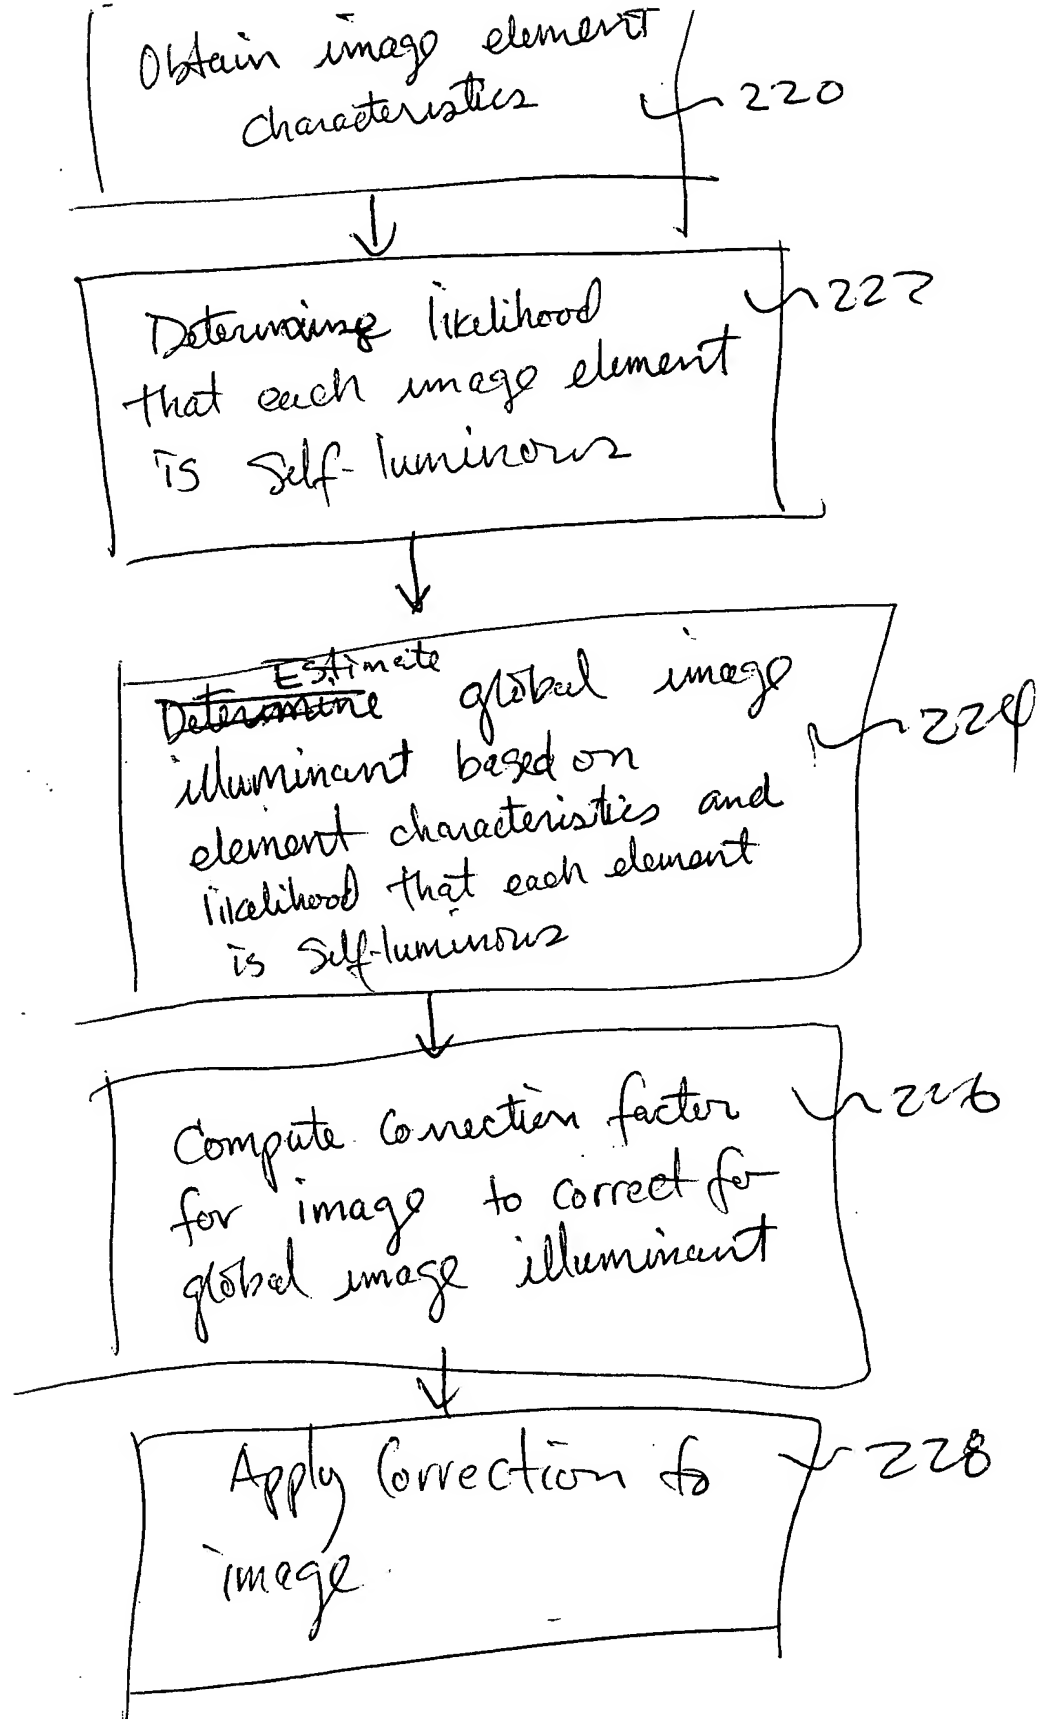 Obtain image element
characteristics
220
Determine likelihood
that each image element
is self-luminous
222
Estimate
Determine global image
illuminant based on
element characteristics and
likelihood that each element
is self-luminous
224
Compute Correction factor
for image to correct for
global image illuminant
226
Apply Correction to
image
228